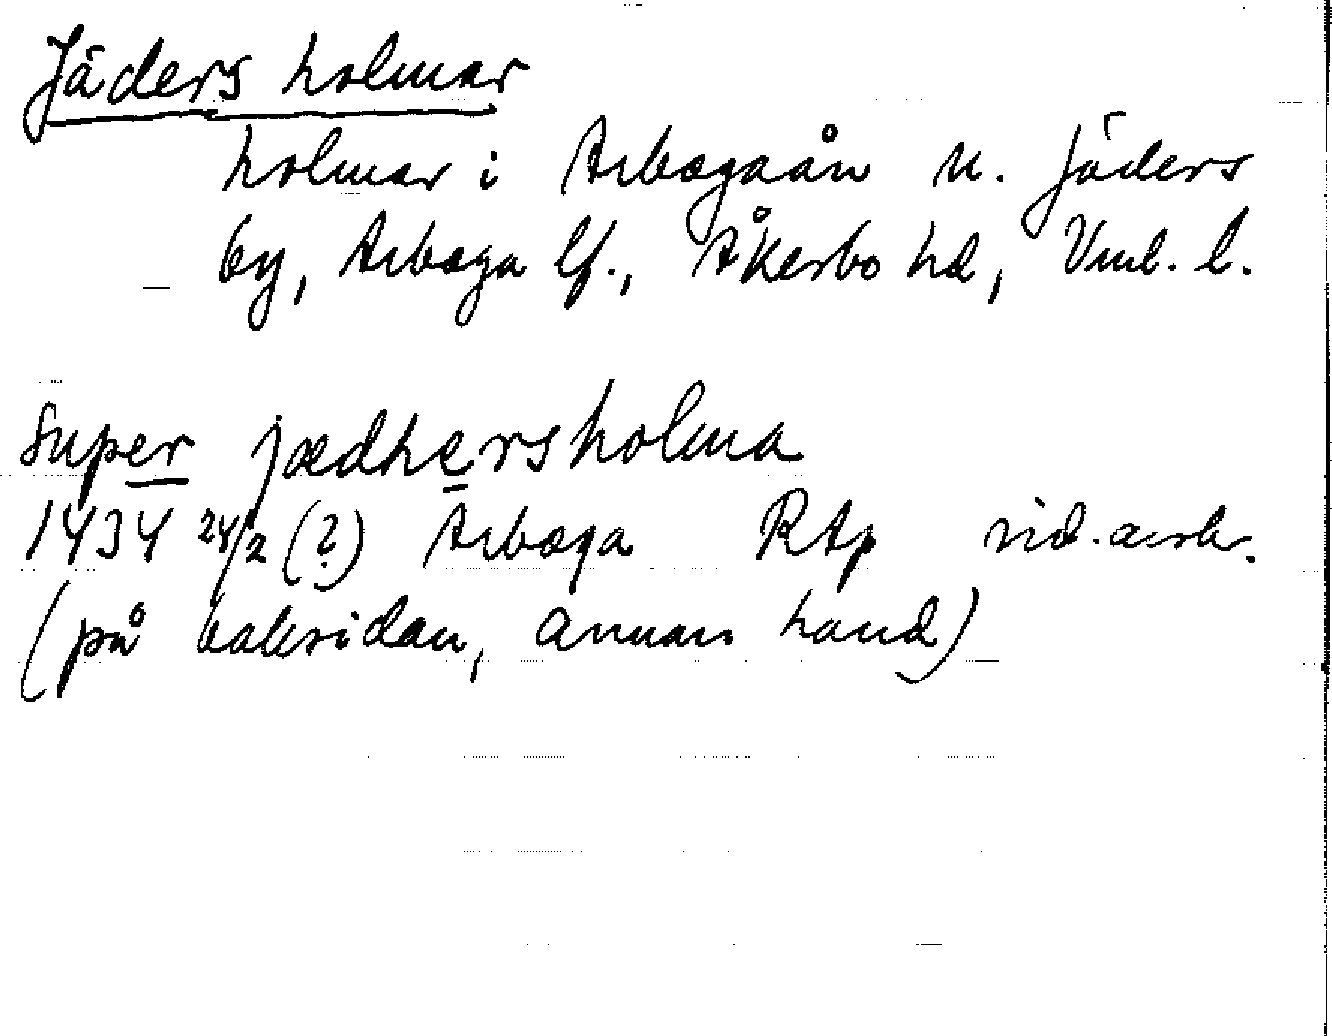 Jäders holmar
holmar i Arbogaån n. Jäders
by, Arboga lf., Åkerbo hd, Vml. l.
Super jædhersholma
1434 24/2 (?) Arboga RAp vid. avskr.
(på baksidan, annan hand)